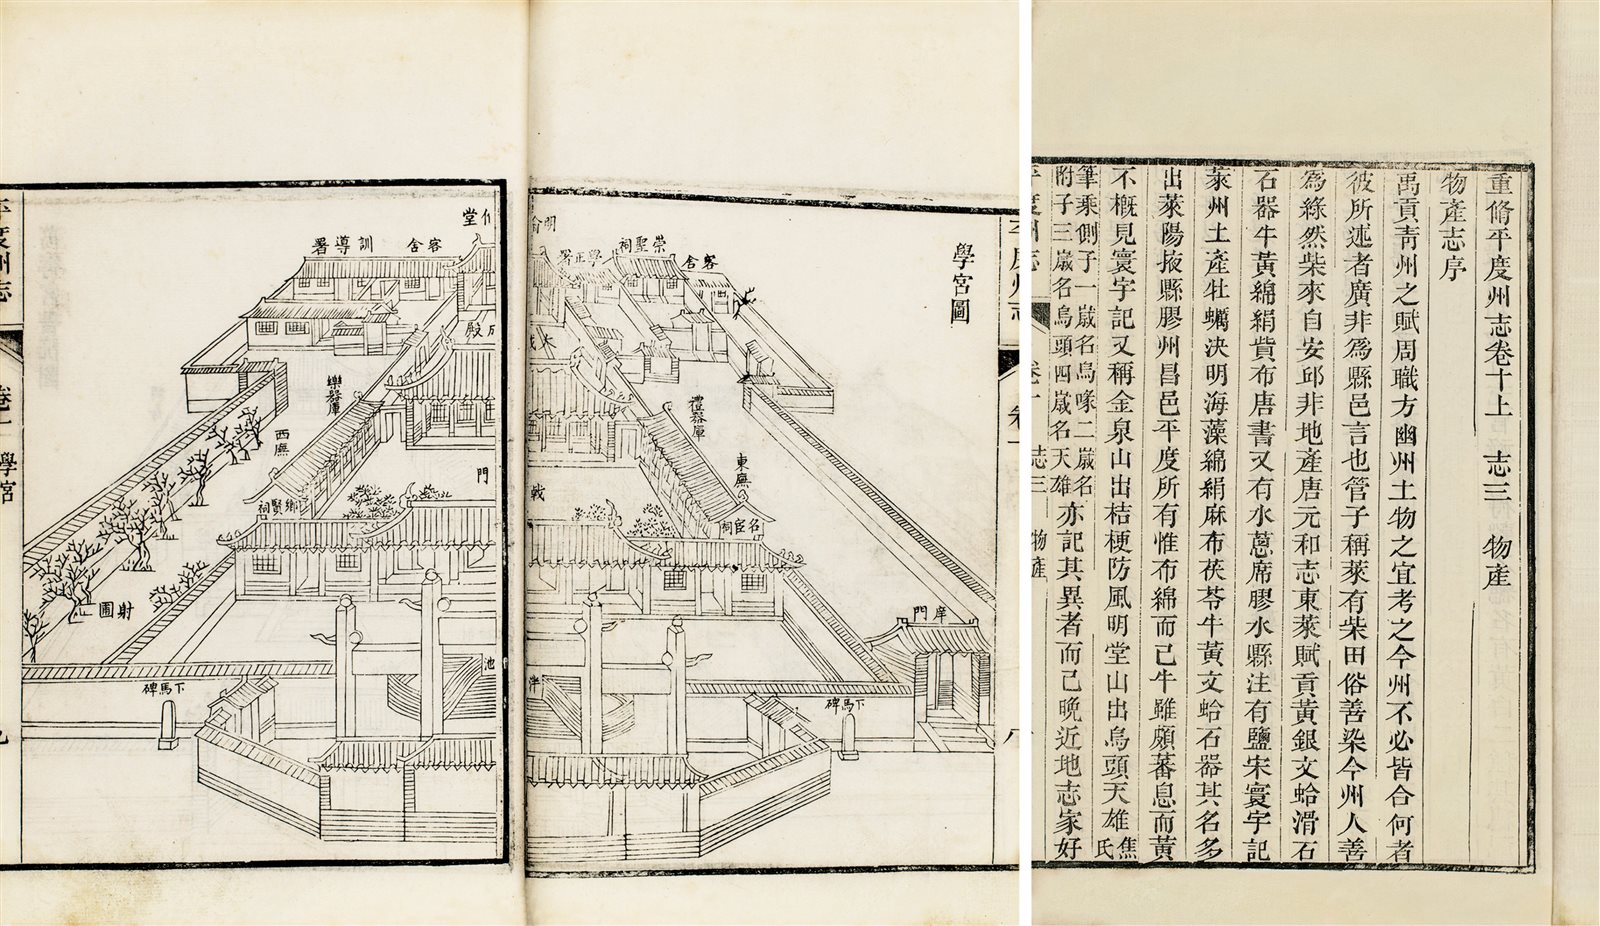 重脩平度州志卷十上 志三 物產
物產志序
禹貢青州之賦周職方幽州土物之宜考之今州不必皆合何者
彼所述者廣非爲縣邑言也管子稱萊有柴田俗善染今州人善
爲綠然柴來自安邱非地產唐元和志東萊賦貢黃銀文蛤滑石
石器牛黃綿絹貲布唐書又有水蔥席膠水縣注有鹽宋寰宇記
萊州土產牡蠣決明海藻綿絹麻布茯苓牛黃文蛤石器其名多
出萊陽掖縣膠州昌邑平度所有惟布綿而已牛雖頗蕃息而黃
不槪見寰宇記又稱金泉山出桔梗防風明堂山出烏頭天雄焦氏
筆乘側子一歲名烏喙二歲名
附子三歲名烏頭四歲名天雄亦記其異者而已晚近地志家好
平度州志 卷十 志三 物產
學宮圖
平度州志
客舍
崇聖祠
學正署
禮器庫
東廡
名宦祠
戟
庠門
下馬碑
泮
客舍
訓導署
樂器庫
西廡
鄉賢祠
門
射圃
池
下馬碑
平度州志 卷一 學宮 九